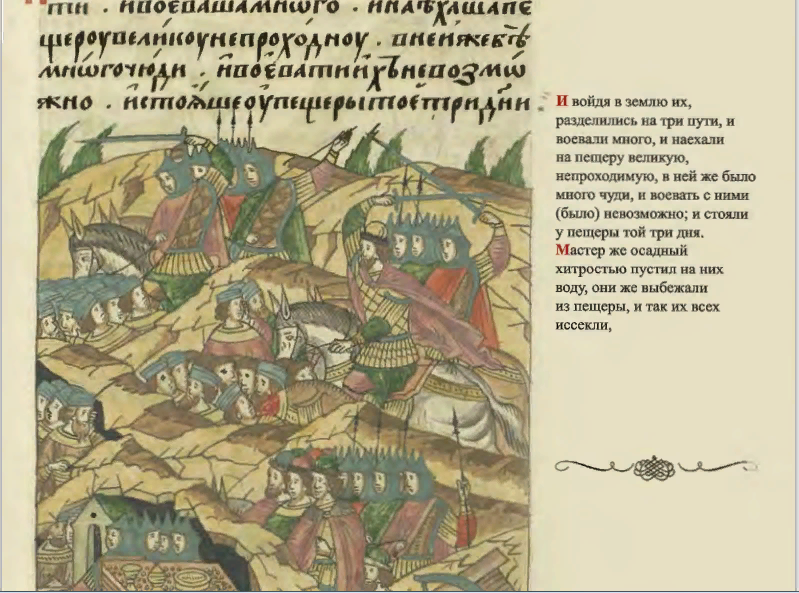 пти . ивоевашамнѡго . инаѣхашапе
щероувеликоунепроходноу . внейжебѣ
мнѡгочюди . ивоеватииⷯъневозмѡ
жно . истоѧшеоупещерытоетридни .
И войдя в землю их,
разделились на три пути, и
воевали много, и наехали
на пещеру великую,
непроходимую, в ней же было
много чуди, и воевать с ними
(было) невозможно; и стояли
у пещеры той три дня.
Мастер же осадный
хитростью пустил на них
воду, они же выбежали
из пещеры, и так их всех
иссекли,